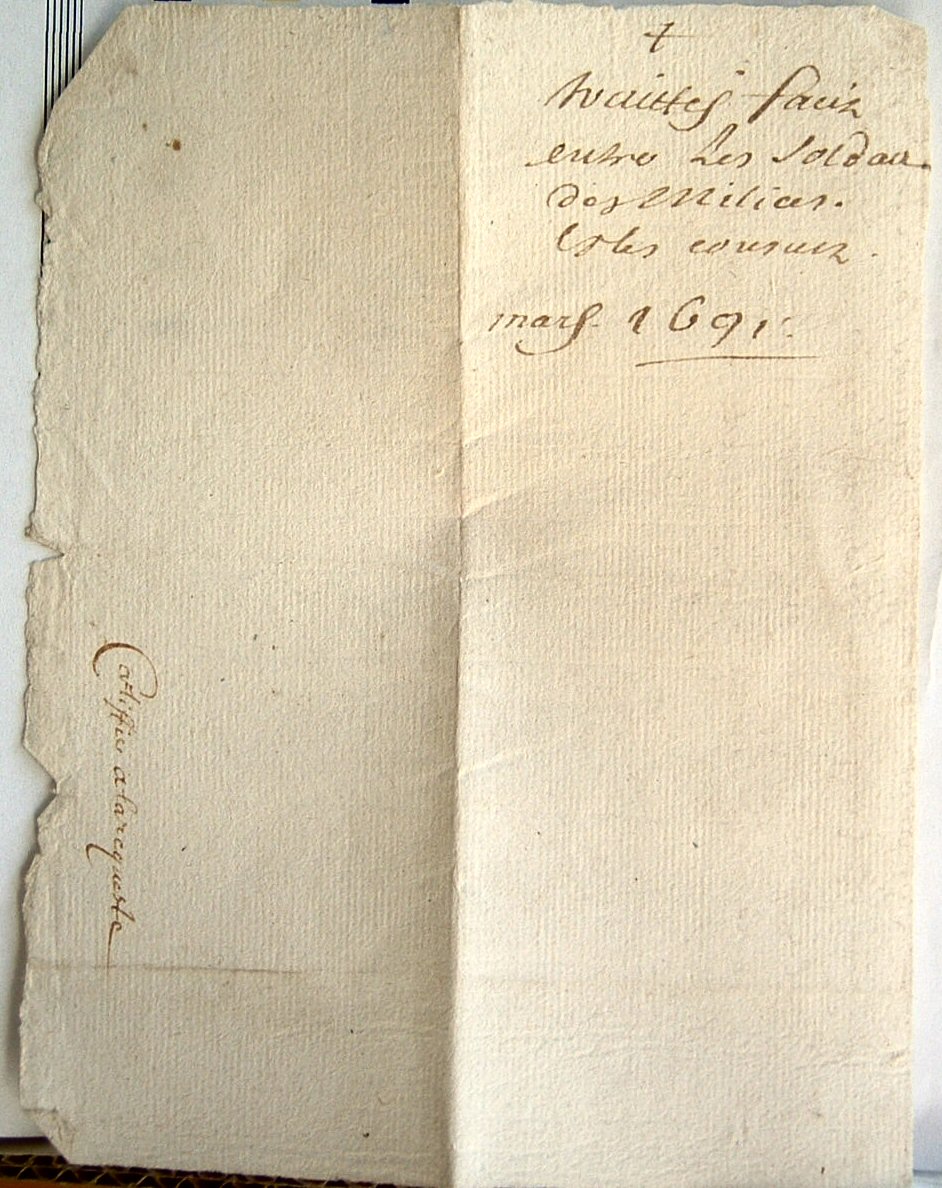 +
traittes faitz
entre Les Soldatz
des Milices.
Et les consulz.
mars 1691.
Certiffice a la requeste